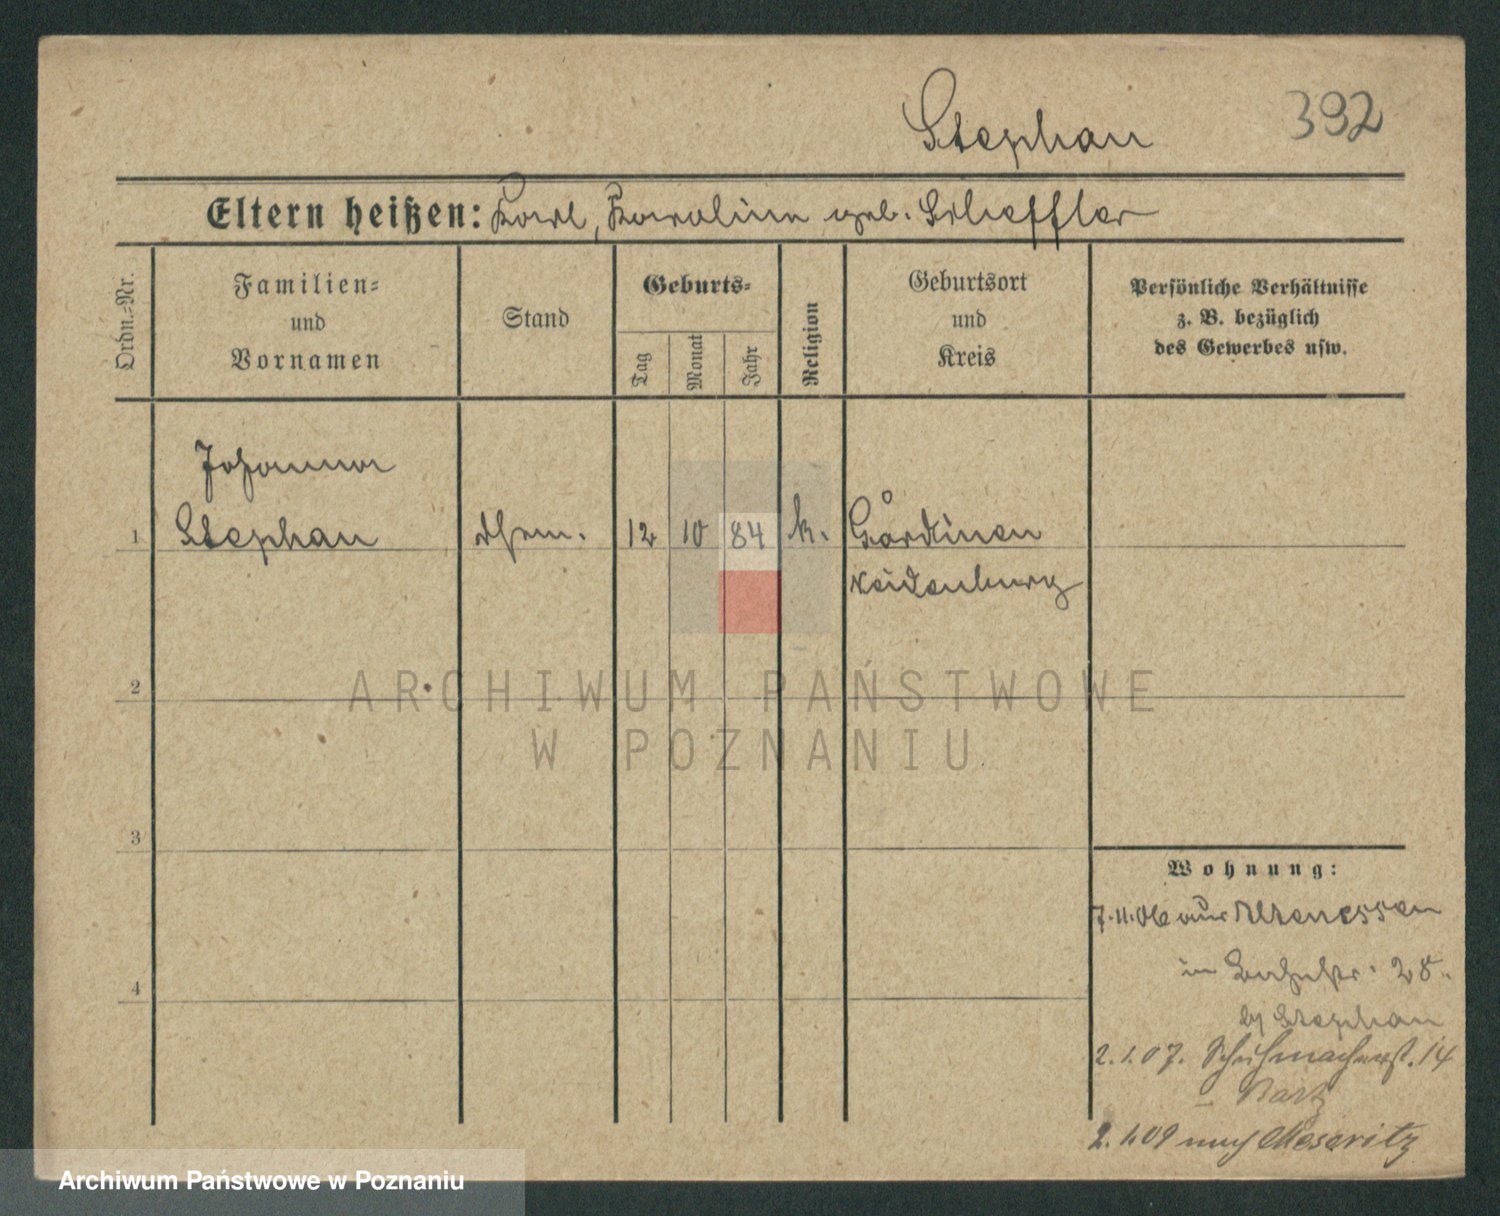 Stephan 392
Eltern heißen: Karl, Karoline geb. Scheffler
Ordn.-Nr.
Familien-
und
Vornamen
Stand
Geburts-
Tag
Monat
Jahr
Religion
Geburtsort
und
Kreis
Persönliche Verhältnisse
z. B. bezüglich
des Gewerbes usw.
Johanna
1 Stephan 12 10 84 k. Gardinen
Neidenburg
2
ARCHIWUM PAŃSTWOWE
W POZNANIU
3
Wohnung:
7.11.06 aus Altenessen
in 28.
by Stephan
4
2.1.07. Schuhmacherst. 14
2.1.09 nach Meseritz
Archiwum Państwowe w Poznaniu